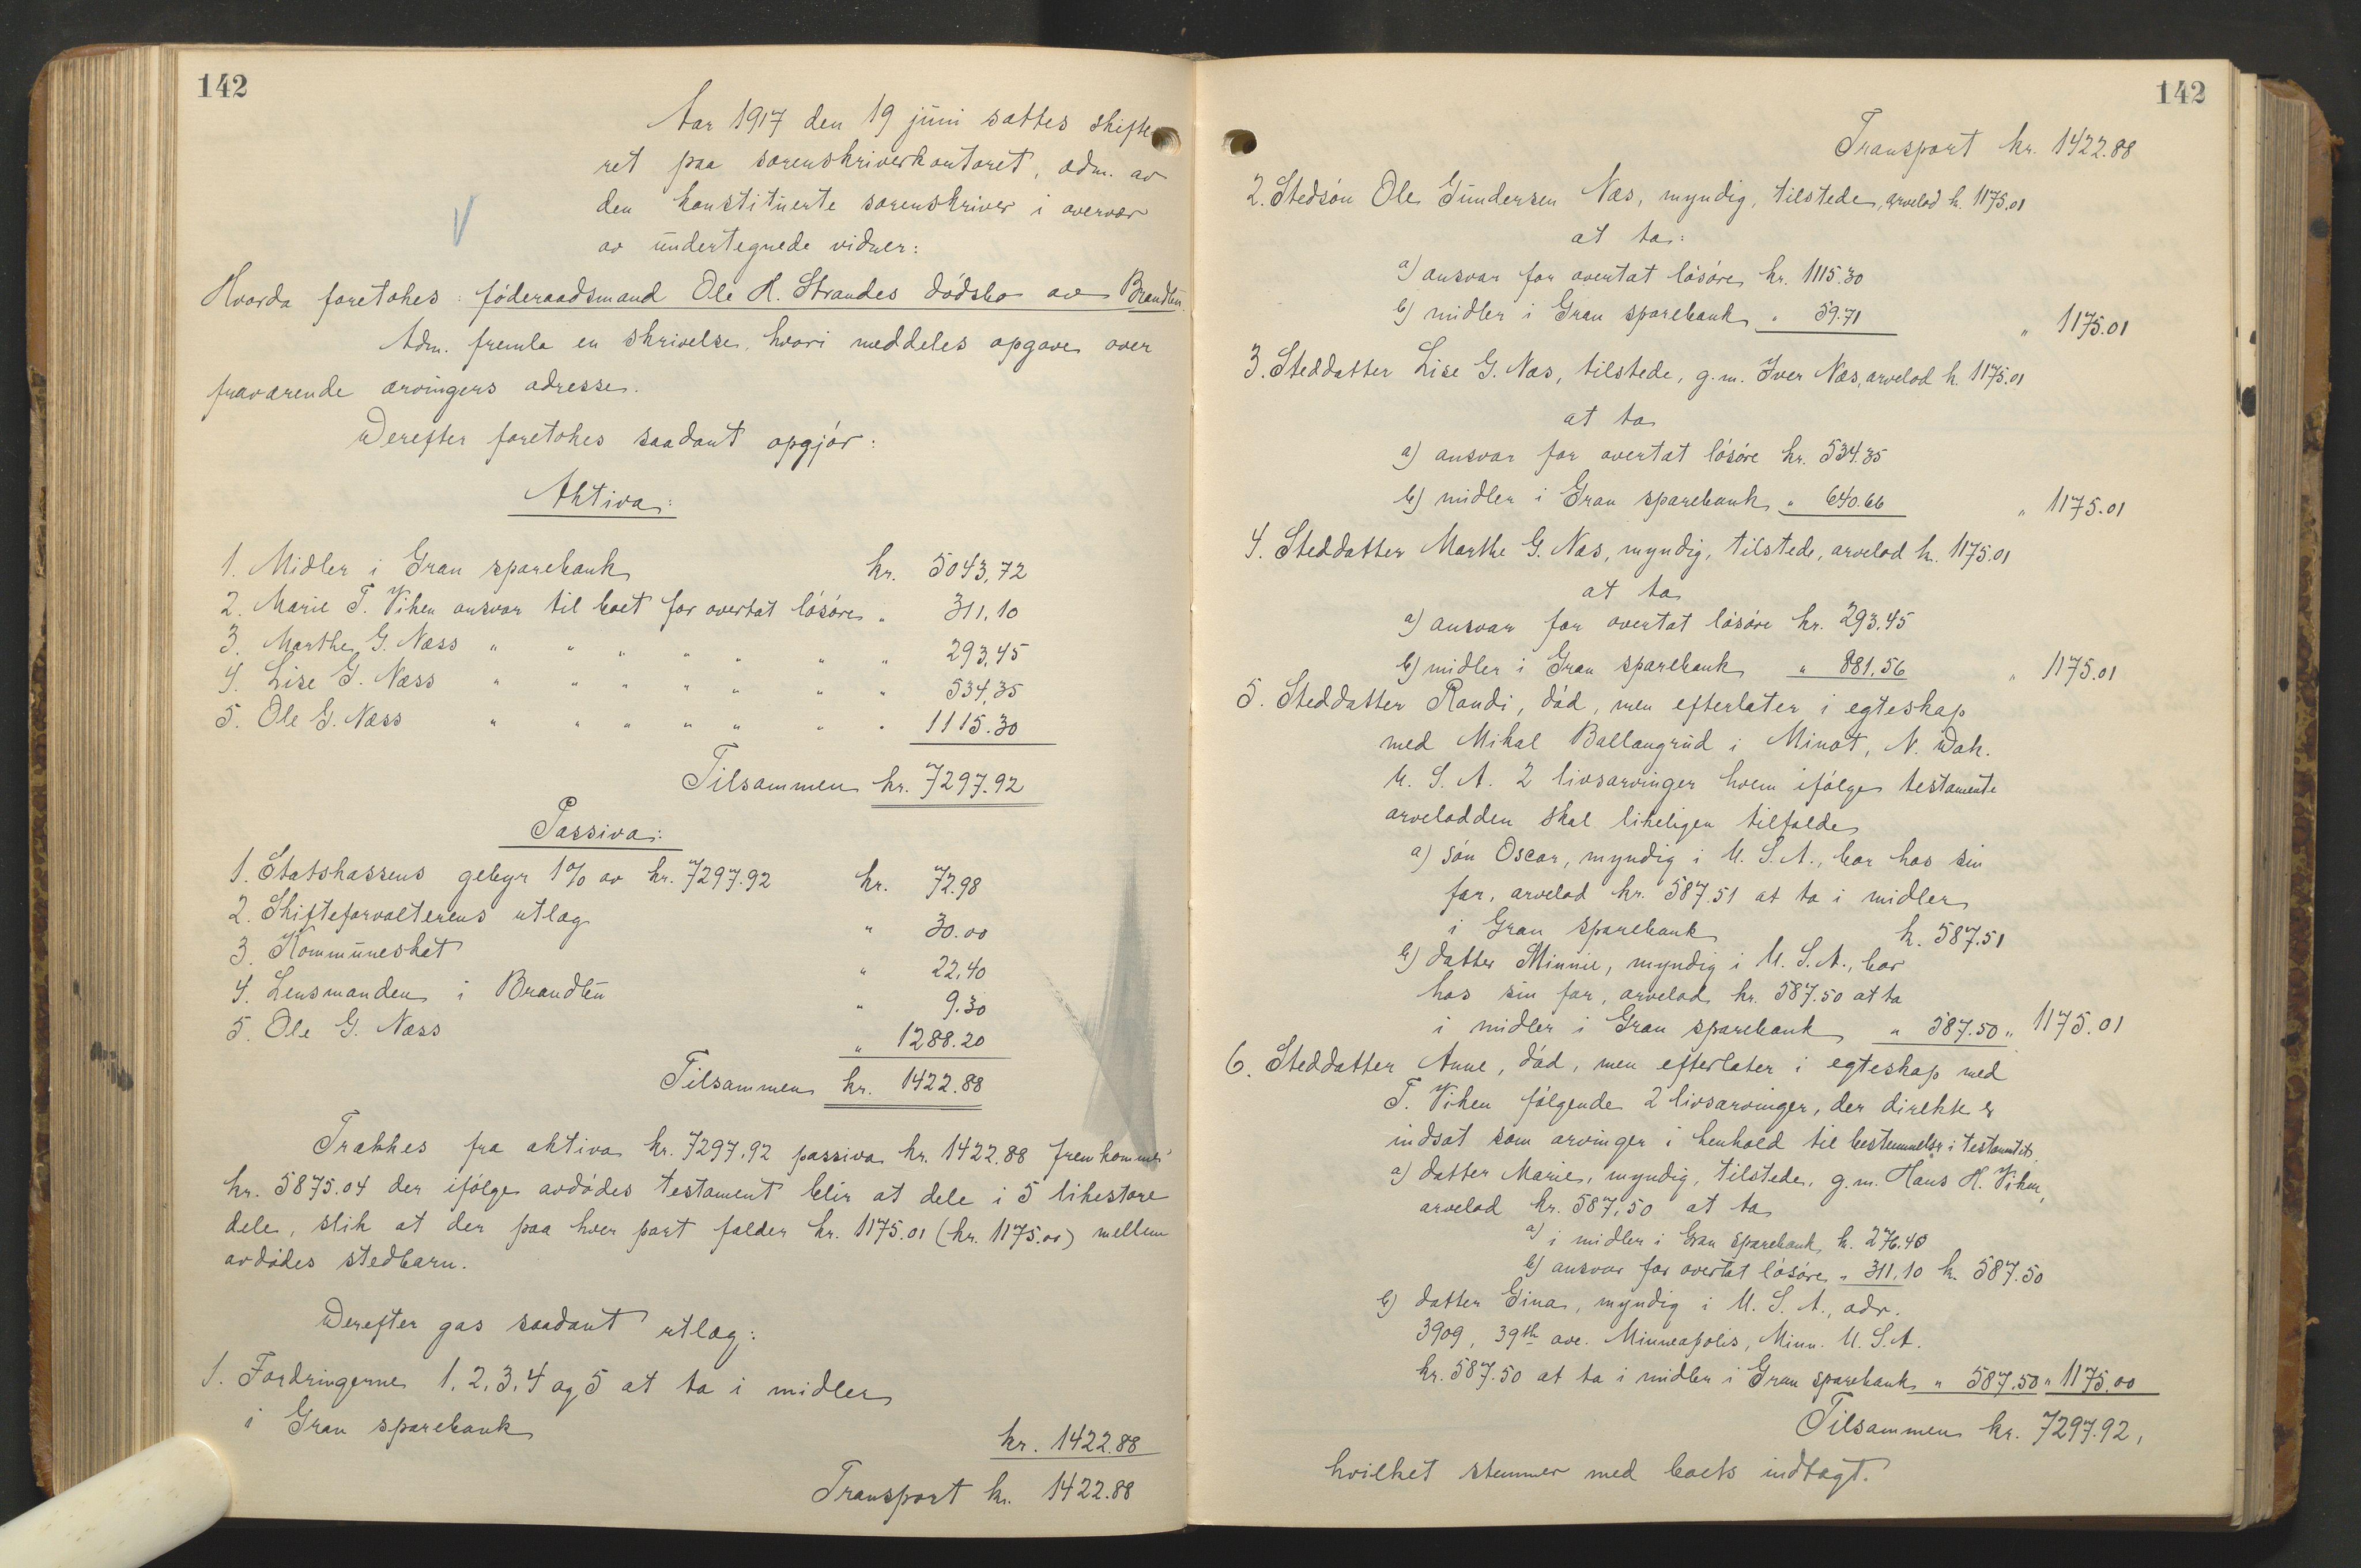 142
Aar 1917 den 19 juni sattes skifte
ret paa sorenskriverkontoret, adm. av
den konstituerte sorenskriver i overvær
av undertegnede vidner:
Hvorda foretokes: föderaadsmand Ole H. Strandes dödsbo av Brandbu.
Adm. fremla en skrivelse, hvori meddeles opgave over
fraværende arvingers adresse.
Derefter foretokes saadant opgjör:
Aktiva:
1. Midler i Gran sparebank kr. 5043,72
2. Marie T. Viken ansvar til boet for overtat lösöre " 311.10
3. Marthe G. Næss " " " " " " " 293,45
4. Lise G. Næss " " " " " " " 534,35
5. Ole G. Næss " " " " " " " 1115.30
Tilsammen kr. 7297.92
Passiva:
1. Statskassens gebyr 1% av kr. 7297.92 kr. 72.98
2. Skifteforvalterens utlæg " 30.00
3. Kommuneskat " 22,40
4. Lensmanden i Brandbu " 9.30
5. Ole G. Næss " 1288.20
Tilsammen kr. 1422.88
Trækkes fra aktiva kr. 7297.92 passiva kr. 1422.88 fremkommer
kr. 5875.04 der ifölge avdödes testament blir at dele i 5 likestore
dele, slik at der paa hver part falder kr. 1175.01 (kr. 1175.00) mellem
avdödes stedbarn.
Derefter gas saadant utlæg:
1. Fordringerne 1, 2, 3, 4 og 5 at ta i midler
i Gran sparebank kr. 1422.88
Transport kr. 1422.88
142
Transport kr. 1422.88
2. Stedsön Ole Gundersen Næs, myndig, tilstede, arvelod k. 1175.01
at ta:
a) ansvar for overtat lösöre kr. 1115.30
b) midler i Gran sparebank " 59.71 " 1175.01
3. Steddatter Lise G. Næs, tilstede, g.m. Iver Næs, arvelod k. 1175.01
at ta
a) ansvar for overtat lösöre kr. 534.35
b) midler i Gran sparebank " 640.66 " 1175.01
4. Steddatter Marthe G. Næs, myndig, tilstede, arvelod k. 1175.01
at ta
a) ansvar for overtat lösöre kr. 293.45
b) midler i Gran sparebank " 881.56 " 1175.01
5. Steddatter Randi, död, men efterlater i egteskap
med Mikal Ballangrud i Minot, N. Dak.
U. S. A. 2 livsarvinger hvem ifölge testamente
arvelodden skal likeligen tilfalde
a) sön Oscar, myndig i U. S. A., bor hos sin
far, arvelod kr. 587.51 at ta i midler
i Gran sparebank k. 587.51
b) datter Minnie, myndig i U. S. A., bor
hos sin far, arvelod kr. 587.50 at ta
i midler i Gran sparebank " 587.50 " 1175.01
6. Steddatter Anne, död, men efterlater i egteskap med
T. Viken fölgende 2 livsarvinger, der direkte er
indsat som arvinger i henhold til bestemmelse i testamentet.
a) datter Marie, myndig, tilstede, g.m. Hans H. Viken,
arvelod kr. 587,50 at ta
a) i midler i Gran sparebank k. 276.40
b) ansvar for overtat lösöre " 311.10 k. 587.50
b) datter Gina, myndig i U. S. A., adr.
3909, 39th ave. Minneapolis, Minn. U. S. A.
kr. 587.50 at ta i midler i Gran sparebank " 587.50 " 1175.00
Tilsammen kr. 7297.92,
hvilket stemmer med boets indtægt.